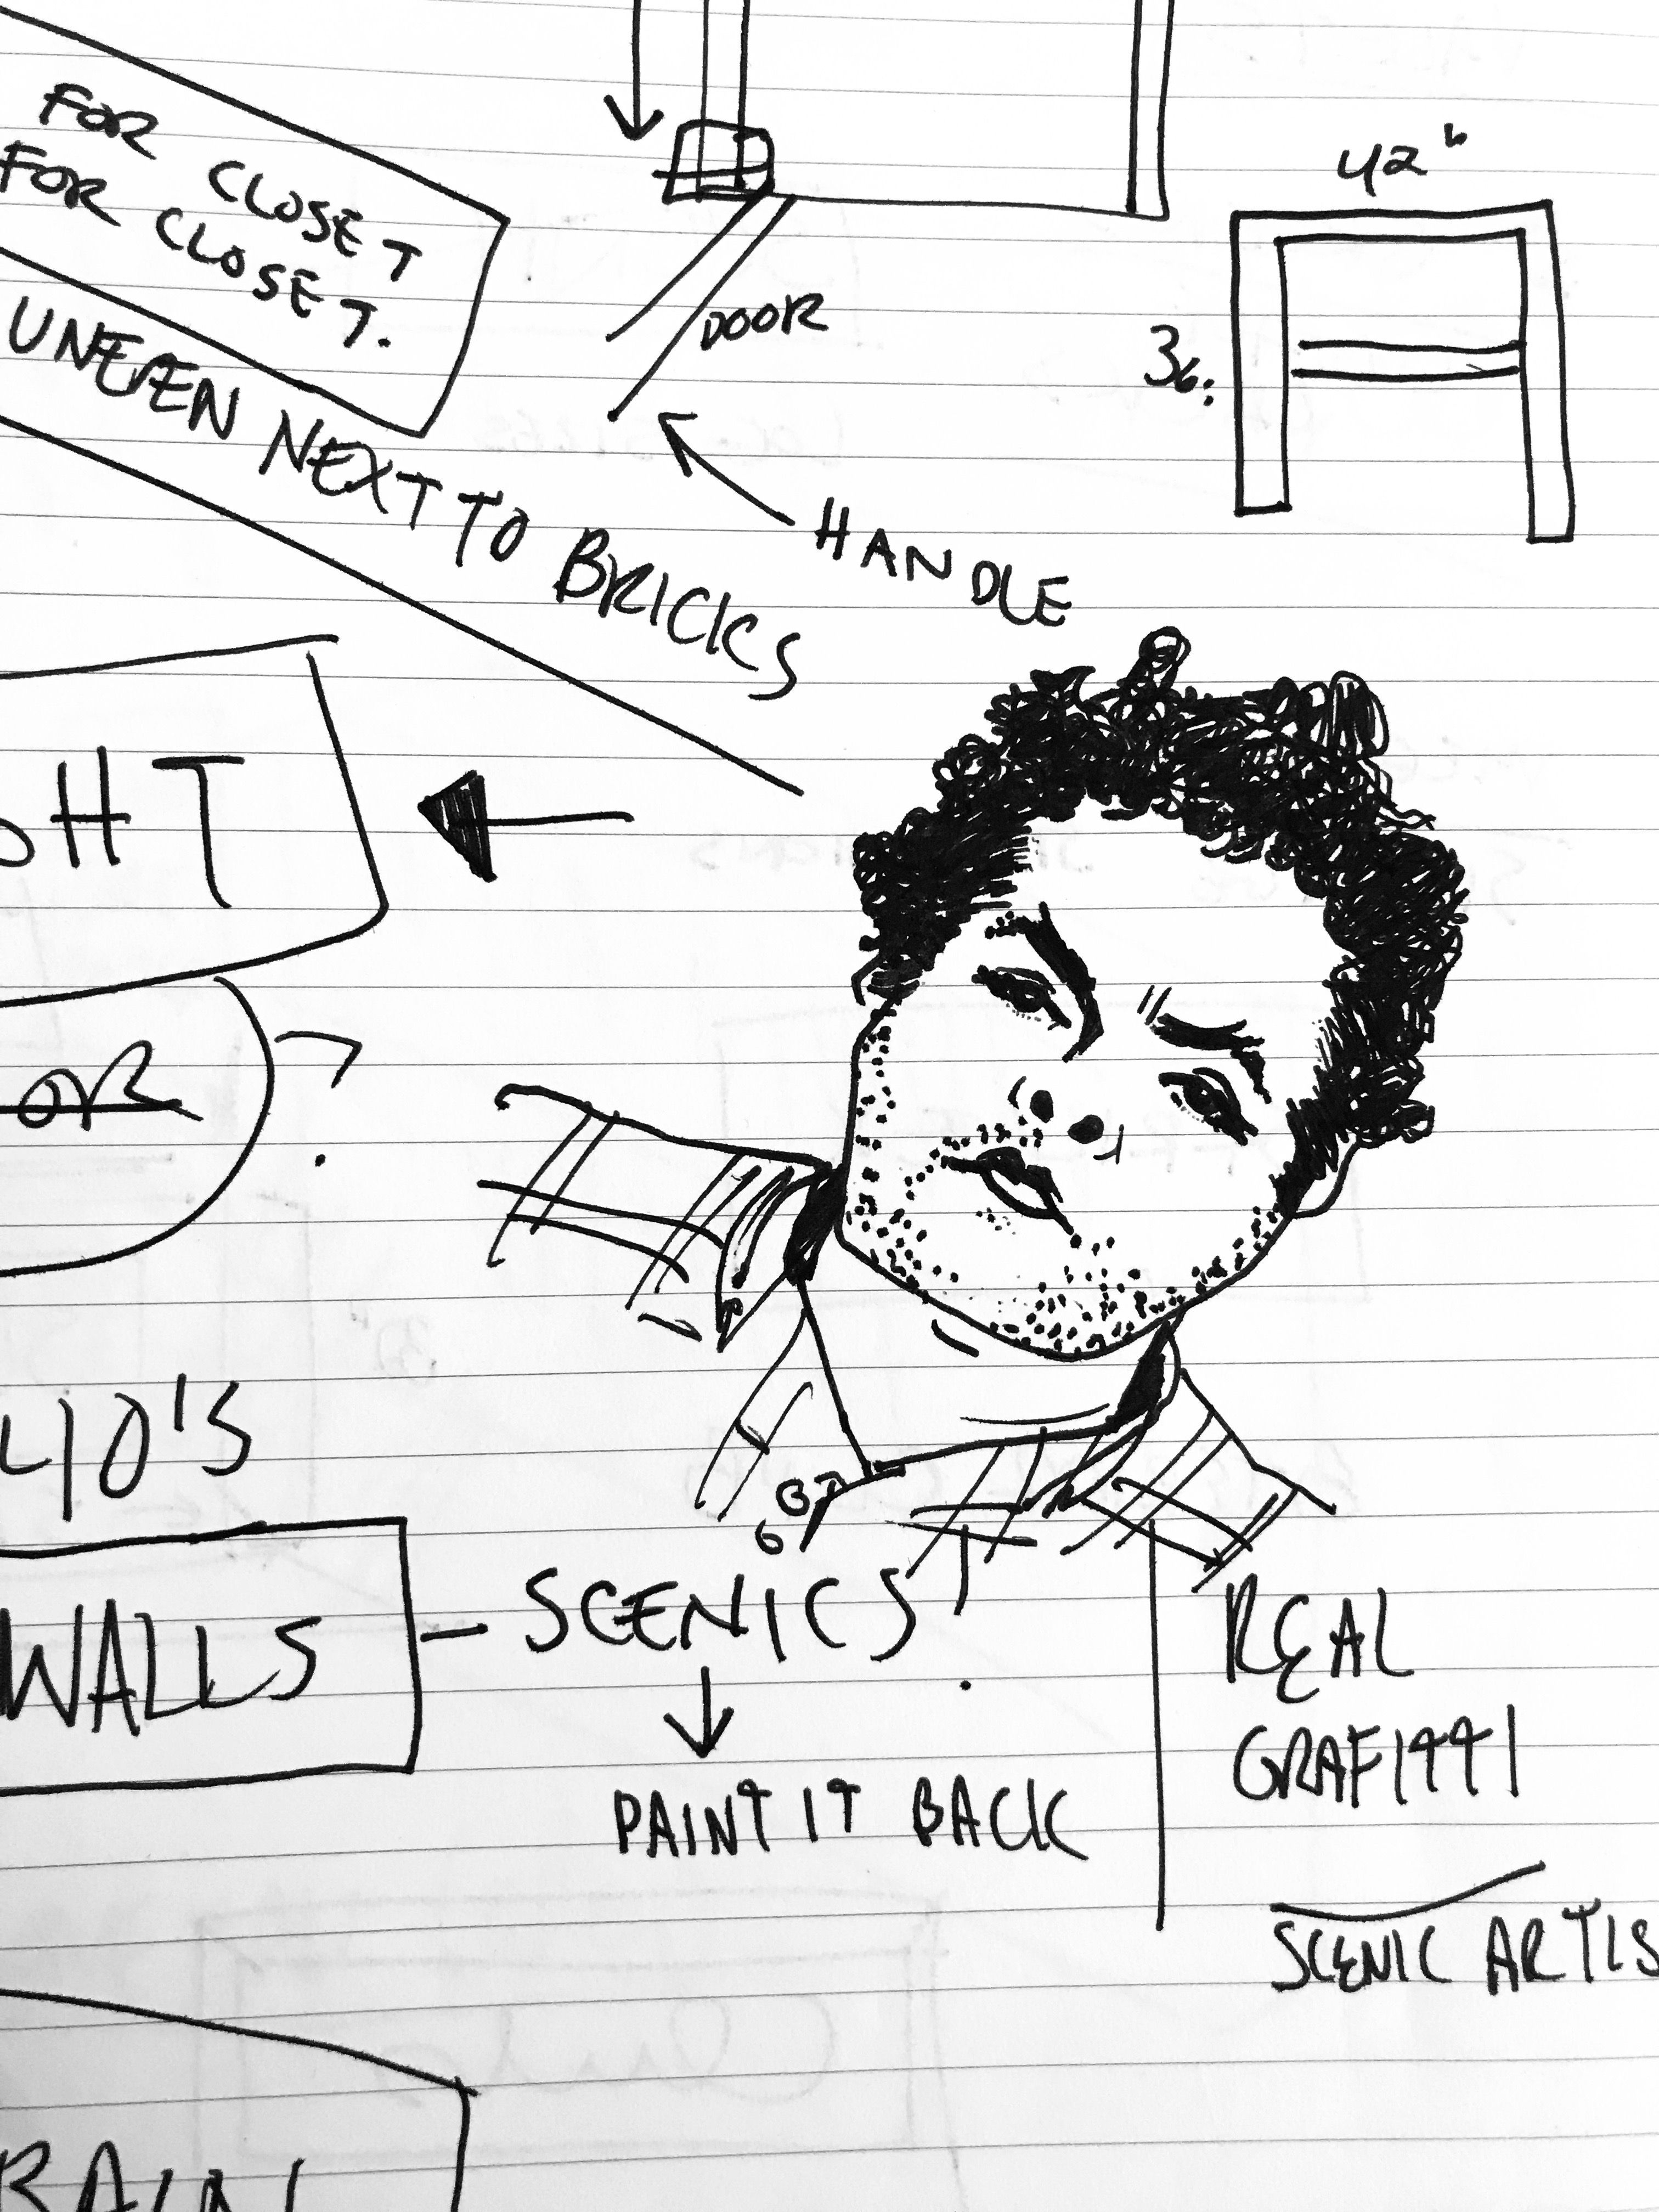 FOR CLOSET
FOR CLOSET.
UNEVEN NEXT TO BRICKS
DOOR
HANDLE
42"
36"
GHT
OR ?
40'S
WALLS - SCENICS!
PAINT IT BACK
REAL
GRAFITTI
SCENIC ARTIS
RAIN